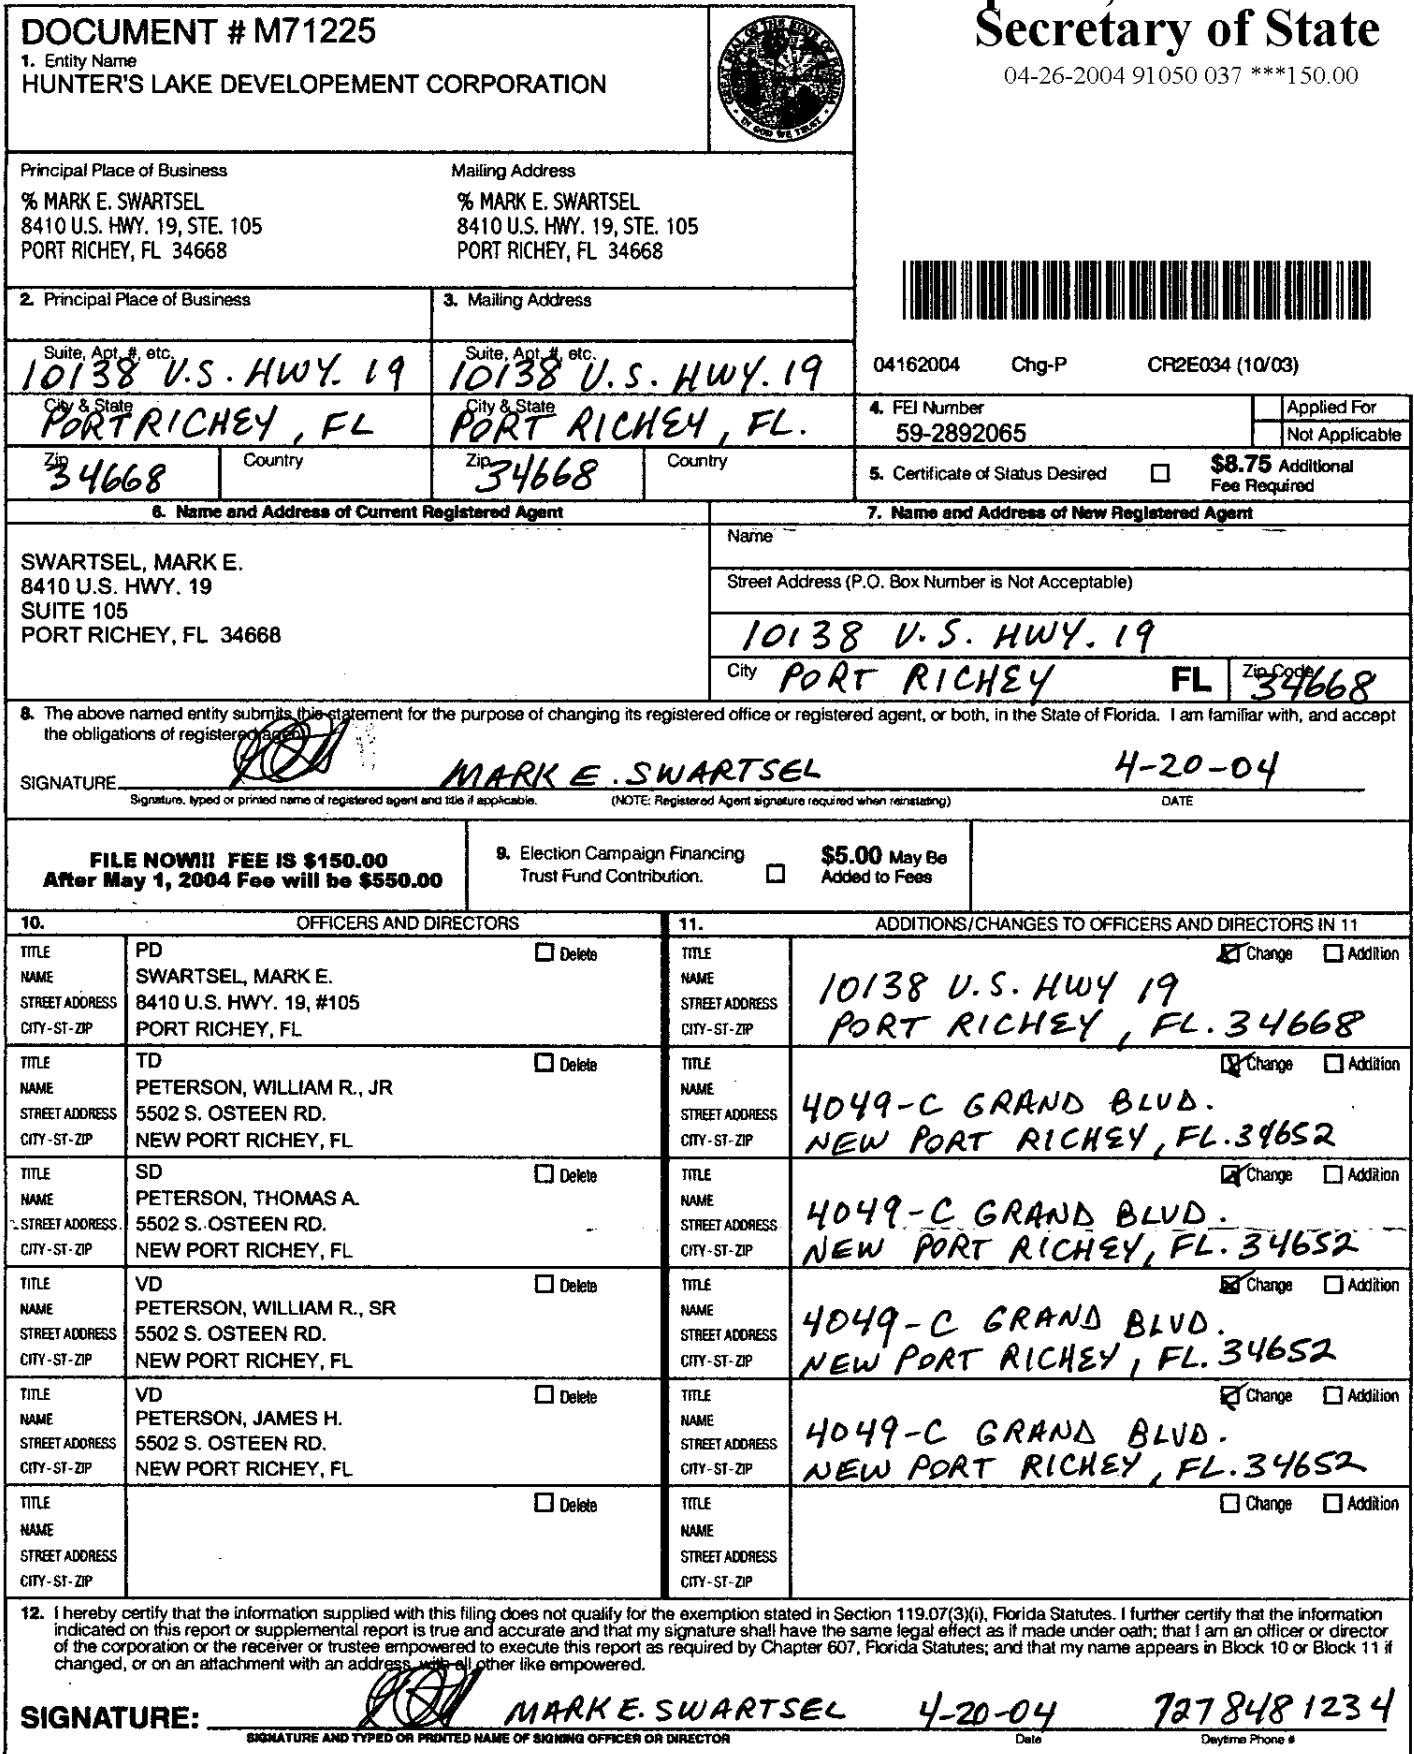 DOCUMENT # M71225
1. Entity Name
HUNTER'S LAKE DEVELOPEMENT CORPORATION
Secretary of State
04-26-2004 91050 037 ***150.00
Principal Place of Business
% MARK E. SWARTSEL
8410 U.S. HWY. 19, STE. 105
PORT RICHEY, FL 34668
Mailing Address
% MARK E. SWARTSEL
8410 U.S. HWY. 19, STE. 105
PORT RICHEY, FL 34668
2. Principal Place of Business
Suite, Apt. #, etc.
10138 U.S. HWY. 19
City & State
PORT RICHEY, FL
Zip
34668
Country
3. Mailing Address
Suite, Apt. #, etc.
10138 U.S. HWY. 19
City & State
PORT RICHEY, FL.
Zip
34668
Country
04162004 Chg-P CR2E034 (10/03)
4. FEI Number
59-2892065
Applied For
Not Applicable
5. Certificate of Status Desired
$8.75 Additional
Fee Required
6. Name and Address of Current Registered Agent
SWARTSEL, MARK E.
8410 U.S. HWY. 19
SUITE 105
PORT RICHEY, FL 34668
7. Name and Address of New Registered Agent
Name
Street Address (P.O. Box Number is Not Acceptable)
10138 U.S. HWY. 19
City PORT RICHEY FL Zip Code 34668
8. The above named entity submits this statement for the purpose of changing its registered office or registered agent, or both, in the State of Florida. I am familiar with, and accept
the obligations of registered agent.
SIGNATURE MARK E. SWARTSEL 4-20-04
Signature, typed or printed name of registered agent and title if applicable. (NOTE: Registered Agent signature required when reinstating) DATE
FILE NOW!!! FEE IS $150.00
After May 1, 2004 Fee will be $550.00
9. Election Campaign Financing
Trust Fund Contribution.
$5.00 May Be
Added to Fees
10. OFFICERS AND DIRECTORS
11. ADDITIONS/CHANGES TO OFFICERS AND DIRECTORS IN 11
TITLE PD Delete
NAME SWARTSEL, MARK E.
STREET ADDRESS 8410 U.S. HWY. 19, #105
CITY-ST-ZIP PORT RICHEY, FL
TITLE Change Addition
NAME
STREET ADDRESS 10138 U.S. HWY 19
CITY-ST-ZIP PORT RICHEY, FL. 34668
TITLE TD Delete
NAME PETERSON, WILLIAM R., JR
STREET ADDRESS 5502 S. OSTEEN RD.
CITY-ST-ZIP NEW PORT RICHEY, FL
TITLE Change Addition
NAME
STREET ADDRESS 4049-C GRAND BLVD.
CITY-ST-ZIP NEW PORT RICHEY, FL. 34652
TITLE SD Delete
NAME PETERSON, THOMAS A.
STREET ADDRESS 5502 S. OSTEEN RD.
CITY-ST-ZIP NEW PORT RICHEY, FL
TITLE Change Addition
NAME
STREET ADDRESS 4049-C GRAND BLVD.
CITY-ST-ZIP NEW PORT RICHEY, FL. 34652
TITLE VD Delete
NAME PETERSON, WILLIAM R., SR
STREET ADDRESS 5502 S. OSTEEN RD.
CITY-ST-ZIP NEW PORT RICHEY, FL
TITLE Change Addition
NAME
STREET ADDRESS 4049-C GRAND BLVD.
CITY-ST-ZIP NEW PORT RICHEY, FL. 34652
TITLE VD Delete
NAME PETERSON, JAMES H.
STREET ADDRESS 5502 S. OSTEEN RD.
CITY-ST-ZIP NEW PORT RICHEY, FL
TITLE Change Addition
NAME
STREET ADDRESS 4049-C GRAND BLVD.
CITY-ST-ZIP NEW PORT RICHEY, FL. 34652
TITLE Delete
NAME
STREET ADDRESS
CITY-ST-ZIP
TITLE Change Addition
NAME
STREET ADDRESS
CITY-ST-ZIP
12. I hereby certify that the information supplied with this filing does not qualify for the exemption stated in Section 119.07(3)(i), Florida Statutes. I further certify that the information
indicated on this report or supplemental report is true and accurate and that my signature shall have the same legal effect as if made under oath; that I am an officer or director
of the corporation or the receiver or trustee empowered to execute this report as required by Chapter 607, Florida Statutes; and that my name appears in Block 10 or Block 11 if
changed, or on an attachment with an address, with all other like empowered.
SIGNATURE: MARK E. SWARTSEL 4-20-04 7278481234
SIGNATURE AND TYPED OR PRINTED NAME OF SIGNING OFFICER OR DIRECTOR Date Daytime Phone #